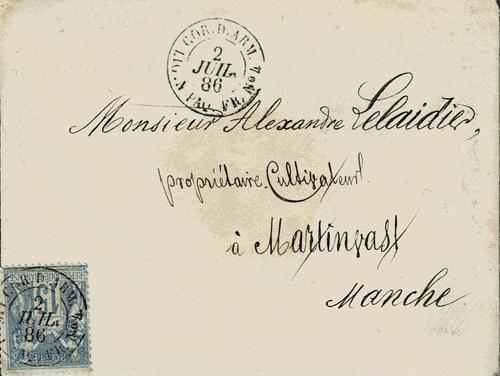 COR.D.ARM.
2
JUIL.
86
PAQ. FR. Nº4
Monsieur Alexandre Lelaidier,
propriétaire. Cultivateur.
à Martinvast
Manche.
COR.D.ARM.
2
JUIL.
86